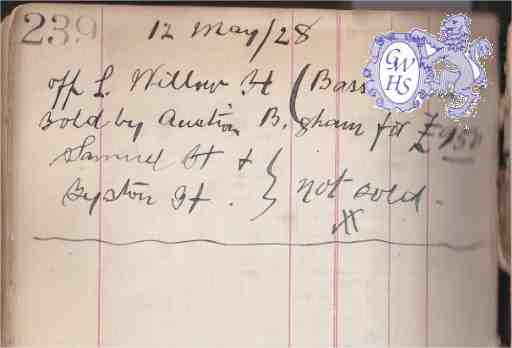 239
12 May/28
off L. Willow St (Bass
GW
HS
sold by Auction B.gham for £950
Samuel St &
Syston St. } not sold.